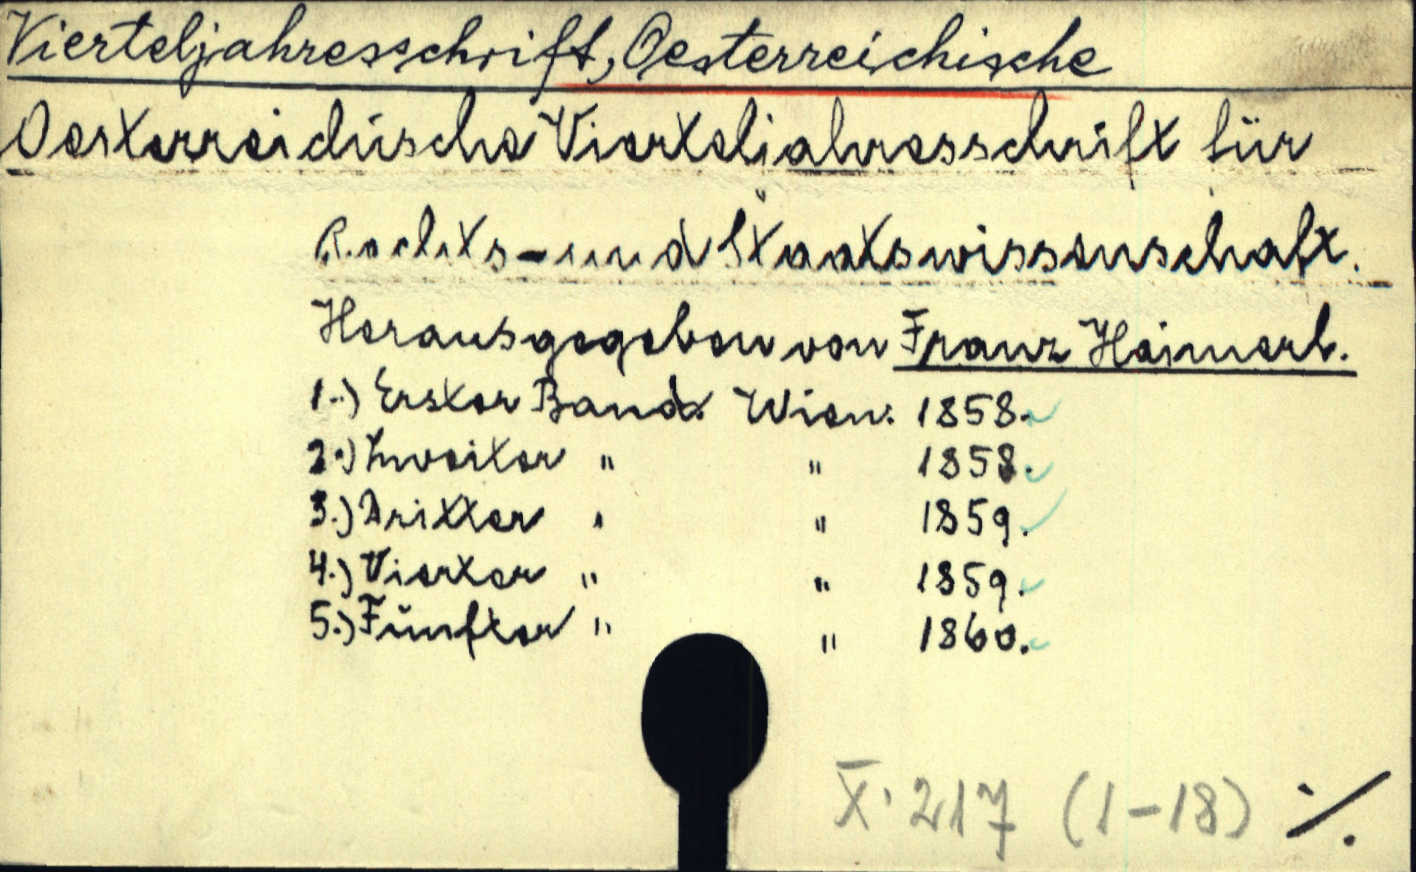 Vierteljahresschrift, Oesterreichische
Oesterreichische Vierteljahresschrift für
Rechts- und Staatswissenschaft.
Herausgegeben von Franz Haimerl.
1.) Erster Band. Wien. 1858.
2.) Zweiter " " 1858.
3.) Dritter " " 1859.
4.) Vierter " " 1859.
5.) Fünfter " " 1860.
X. 217 (1-18) ./.